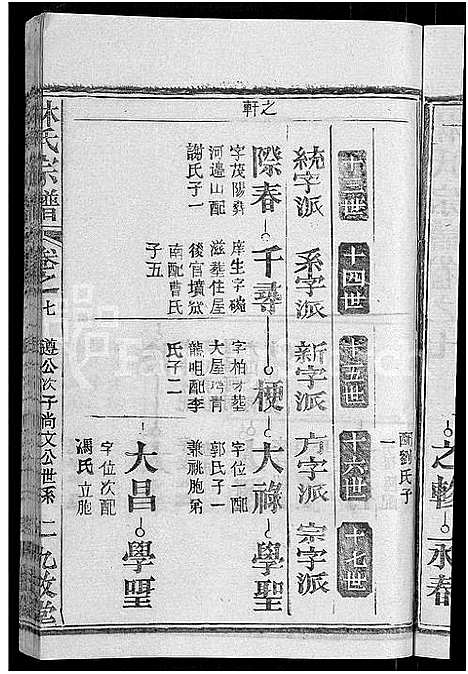 永春
之軫
配劉氏子
一
之軒
十三世 十四世 十五世 十六世 十七世
統字派 系字派 新字派 方字派 宗字派
際春 千尋 梗 大祿 學聖
字茂陽葬
河邊山配
謝氏子一
庠生字碗
滋墓住屋
後官墳㘭
南配曹氏
子五
字柏才墓
大屋塆青
龍咀配李
氏子二
字位一配
郭氏子一
兼祧胞弟
大昌 學聖
字位次配
馮氏立胞
林氏宗譜 卷之七 遵公次子尚文公世系 二 九牧堂